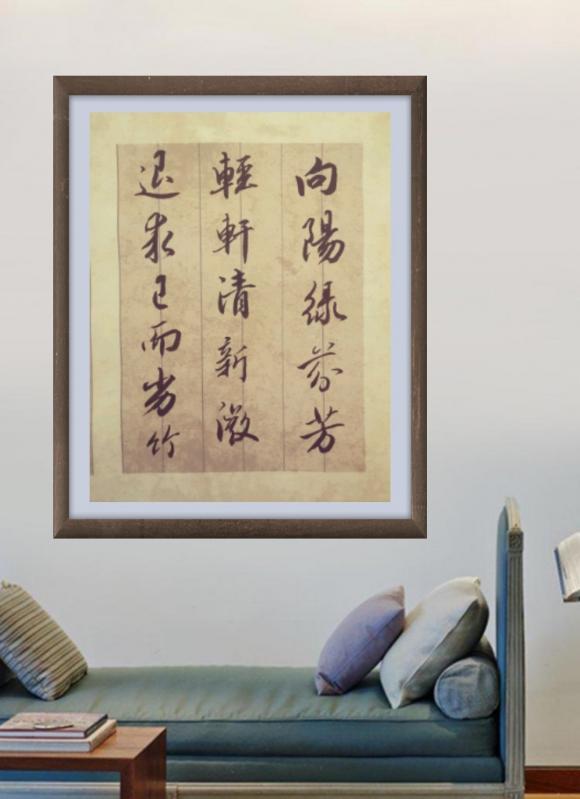 向陽綠芬芳
輕軒清新澂
退求已而竹